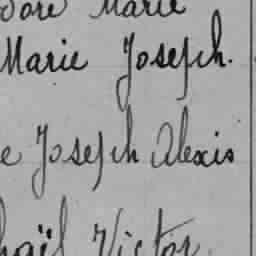 dore Marie
Marie Joseph.
e Joseph Alexis
haël Victor